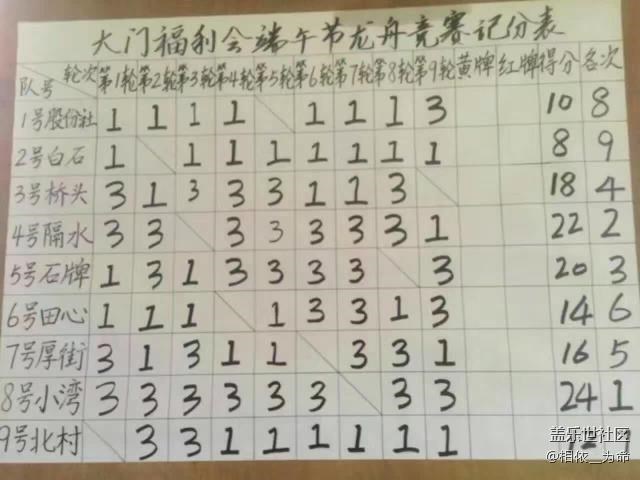 大门福利会端午节龙舟竞赛记分表
队号 轮次 第1轮 第2轮 第3轮 第4轮 第5轮 第6轮 第7轮 第8轮 第9轮 黄牌 红牌 得分 名次
1号股份社 1 1 1 1 \ 1 1 1 3 10 8
2号白石 1 \ 1 1 1 1 1 1 1 8 9
3号桥头 3 1 3 3 3 1 1 3 \ 18 4
4号隔水 3 3 \ 3 3 3 3 3 1 22 2
5号石牌 1 3 1 3 3 3 3 \ 3 20 3
6号田心 1 1 1 \ 1 3 3 1 3 14 6
7号厚街 3 1 3 1 1 \ 3 3 1 16 5
8号小湾 3 3 3 3 3 3 \ 3 3 24 1
9号北村 \ 3 3 1 1 1 1 1 1
盖乐世社区
@相依__为命